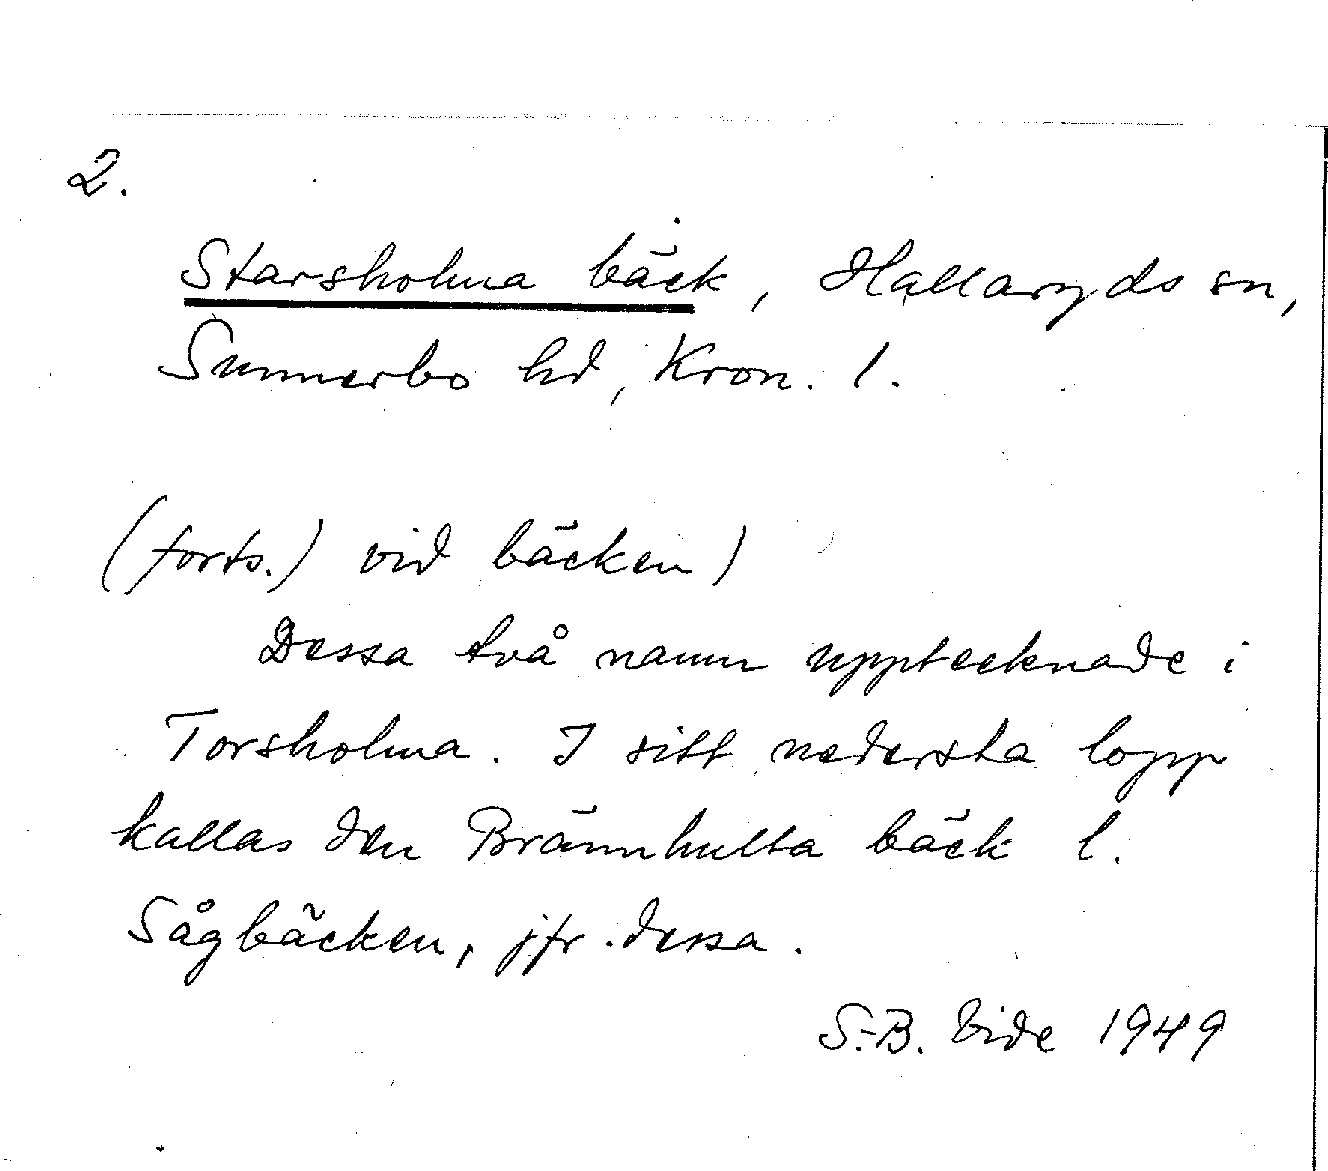 2.
Starsholma bäck, Hallaryds sn,
Sunnerbo hd, Kron. l.
(forts.) vid bäcken)
Dessa två namn upptecknade i
Torsholma. I sitt nedersta lopp
kallas den Brännhulta bäck l.
Sågbäcken, jfr. dessa.
S.-B. Vide 1949